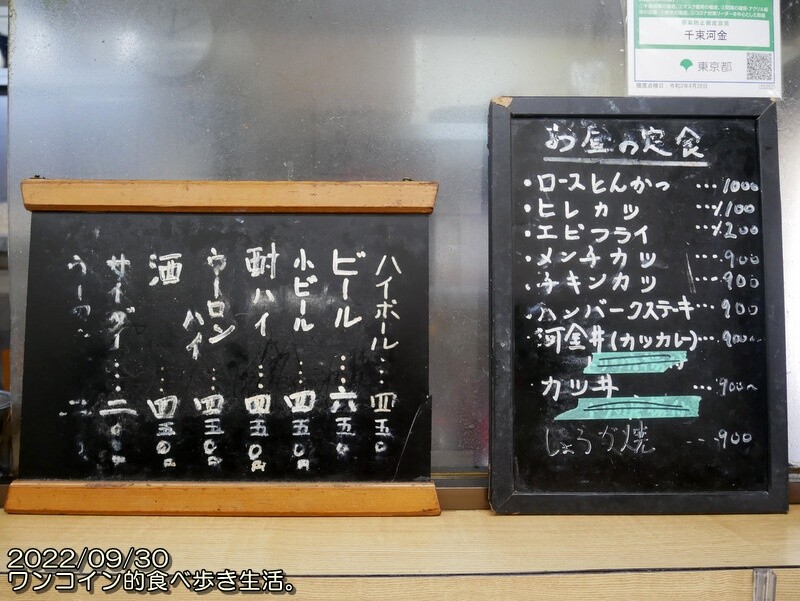 千束河金
東京都
お昼の定食
・ロースとんかつ …1000
・ヒレカツ …1100
・エビフライ …1200
・メンチカツ …900
・チキンカツ …900
・ハンバークステーキ…900
・河金丼(カツカレー)…900~
カツ丼 …900~
しょうが焼 …900
ハイボール…四五〇
ビール……六五〇
小ビール……四五〇円
酎ハイ……四五〇円
ウーロンハイ……四五〇円
酒……四五〇円
サイダー……二〇〇円
2022/09/30
ワンコイン的食べ歩き生活。